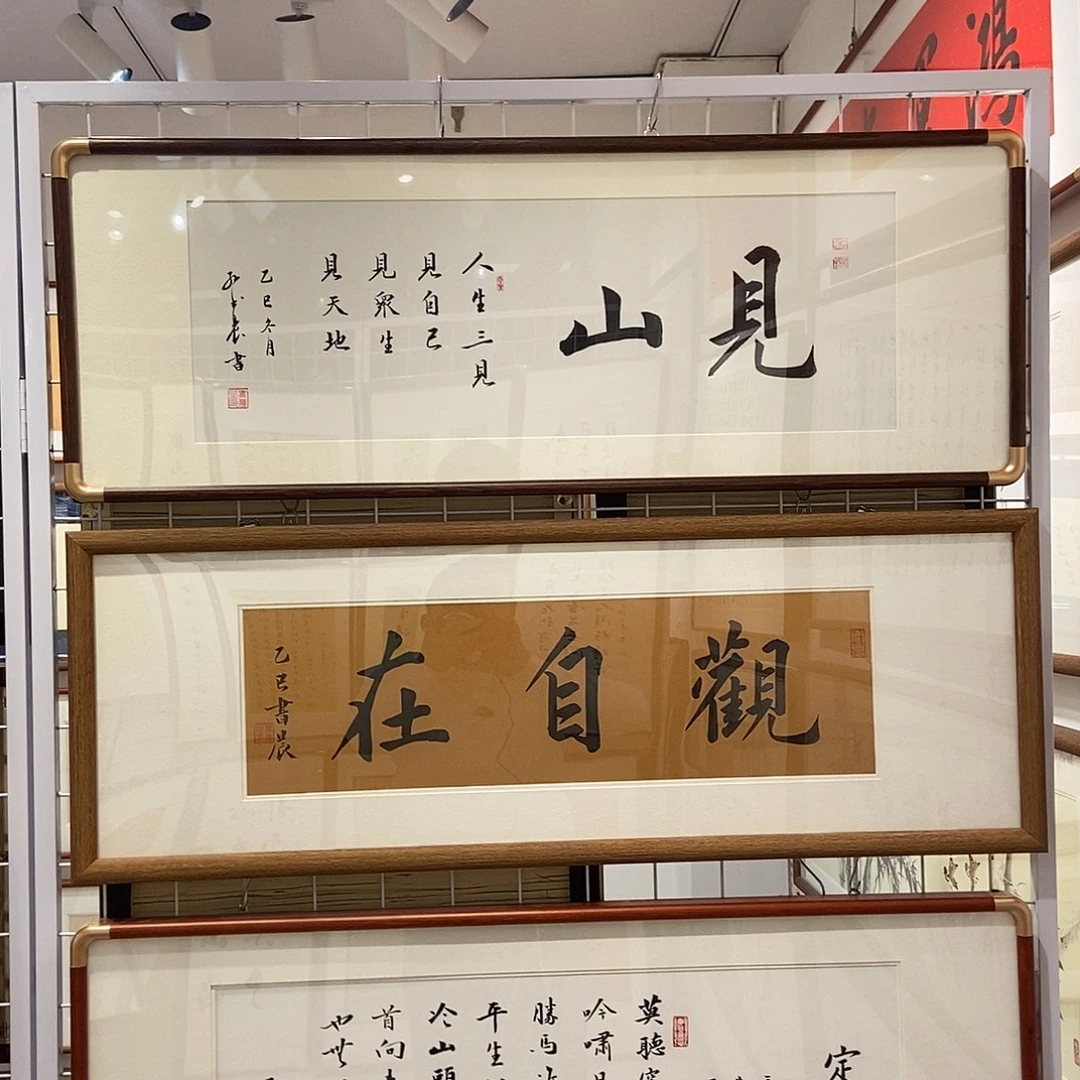 見山
人生三見
見自己
見衆生
見天地
乙巳冬月
書
觀自在
乙巳書晨
定
莫聽穿
吟嘯
勝馬
平生
冷山頭
首向
也無